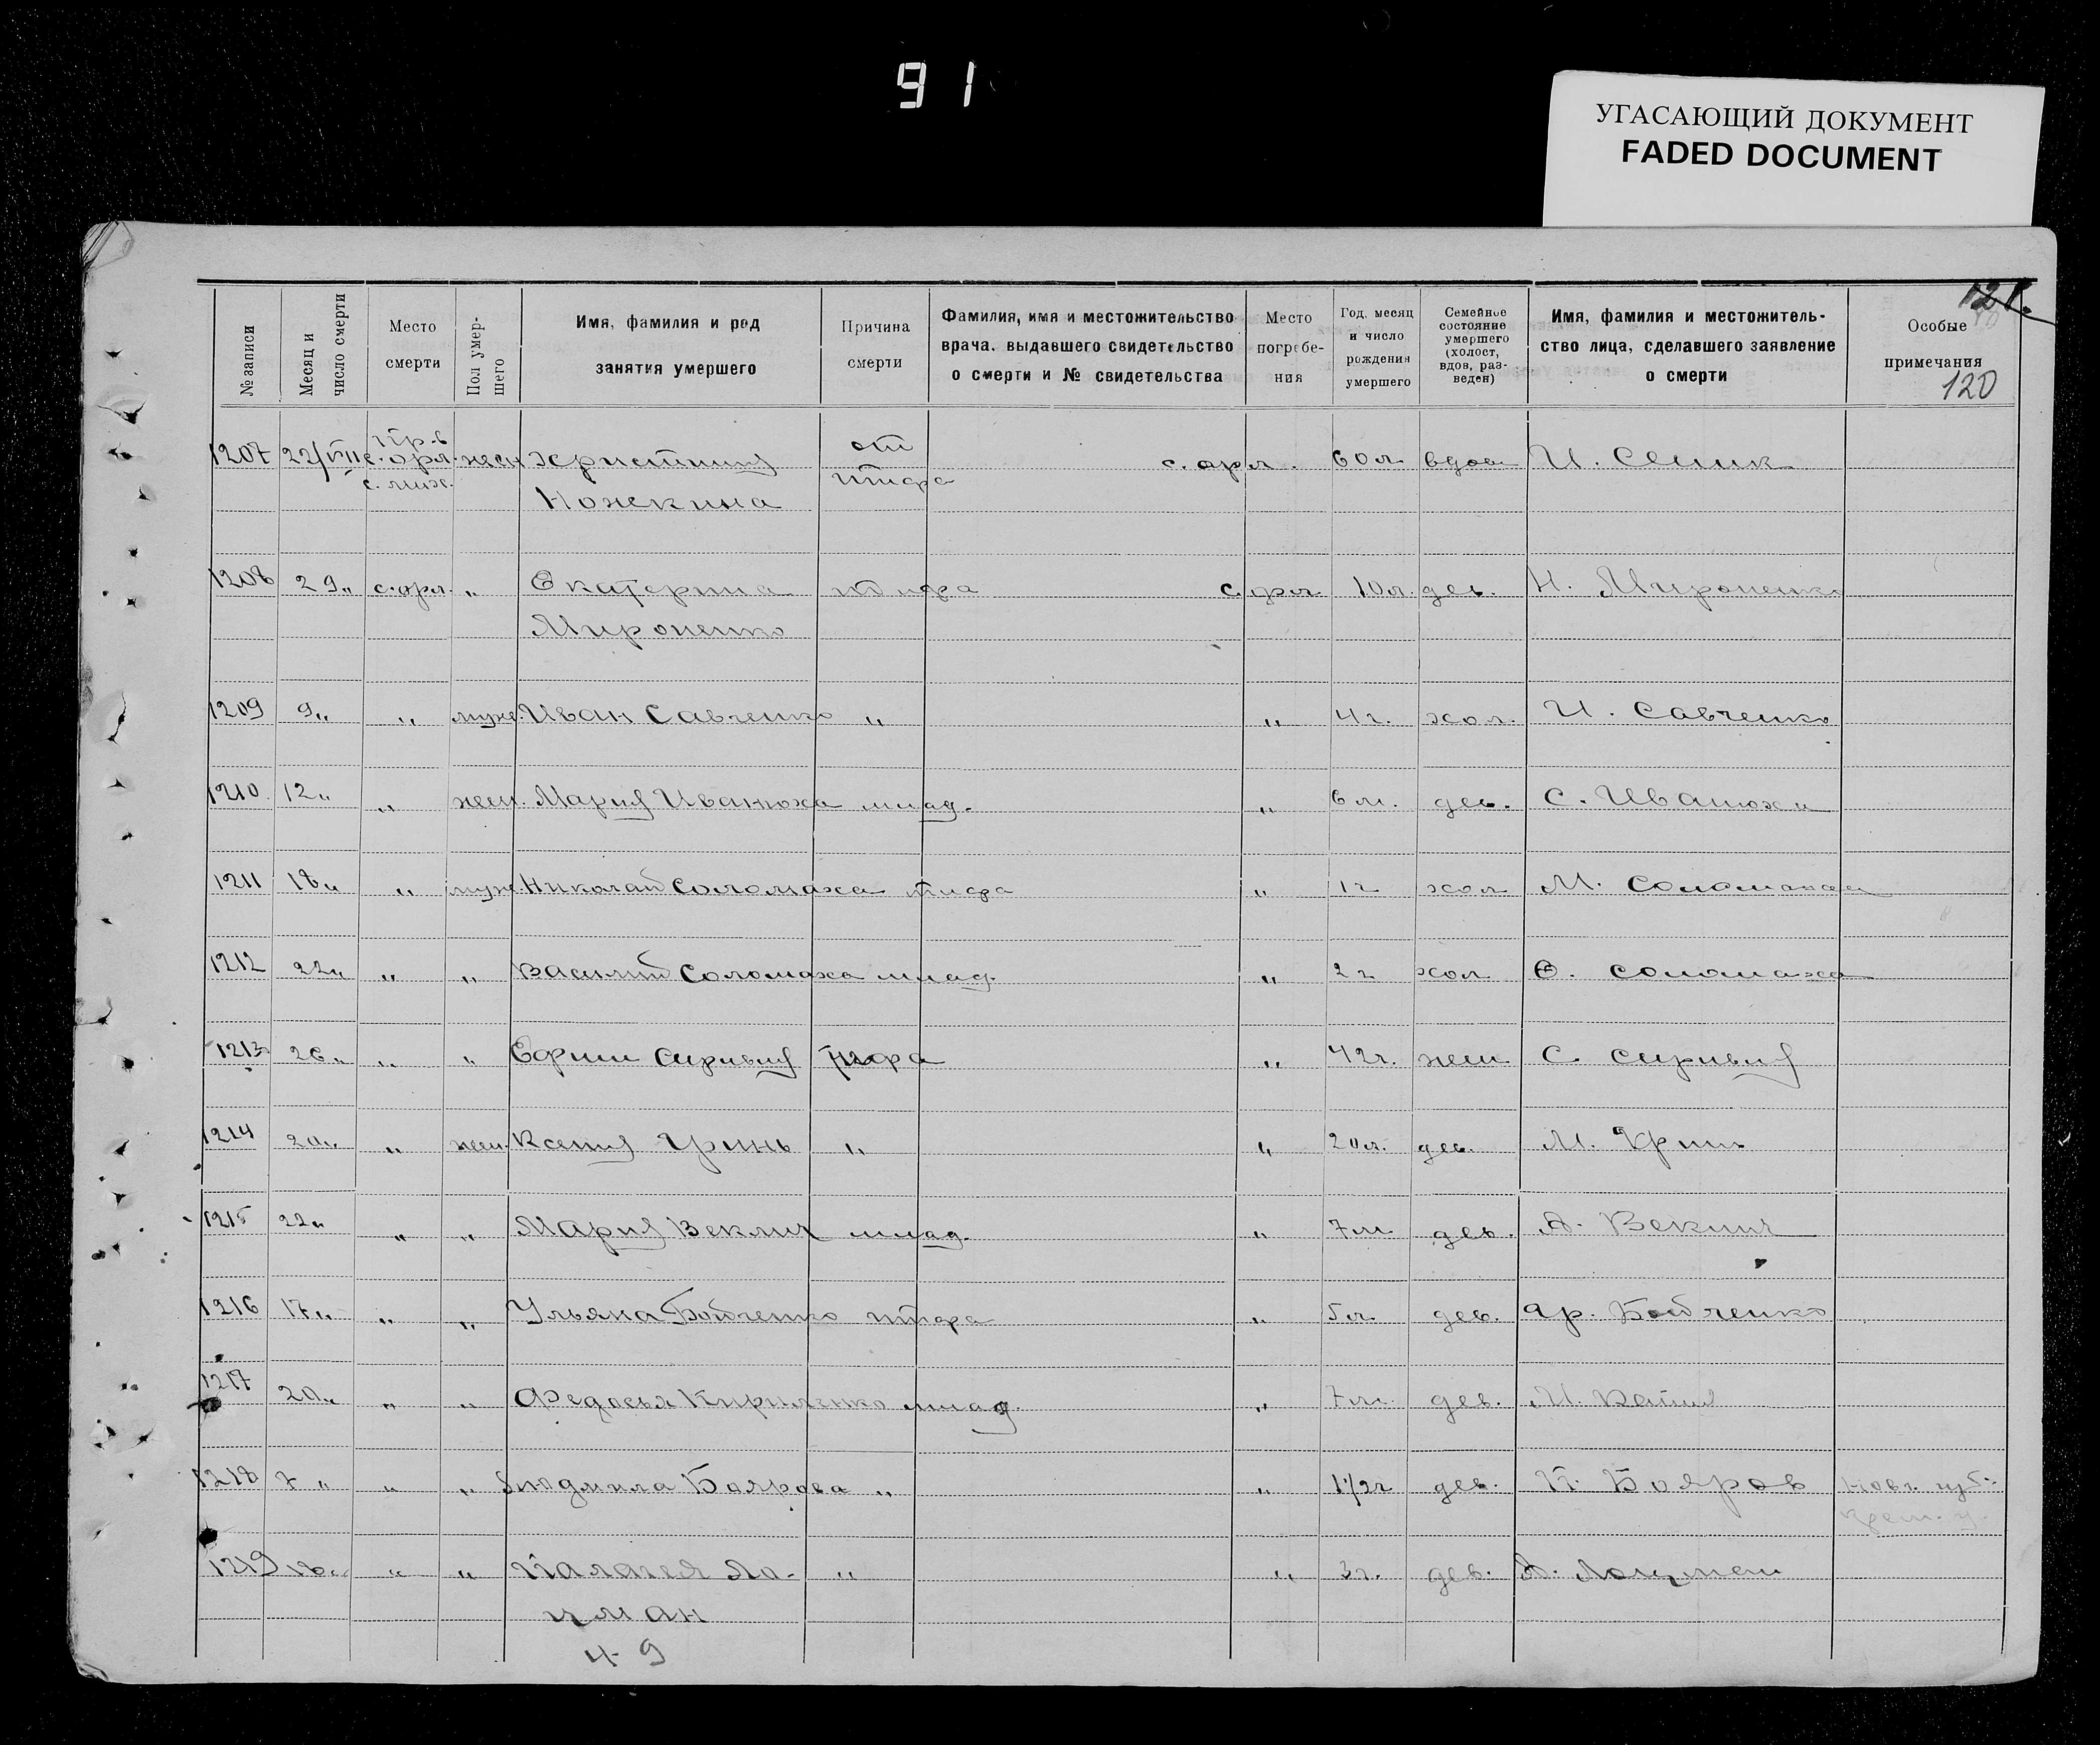 91
УГАСАЮЩИЙ ДОКУМЕНТ
FADED DOCUMENT
№ записи
Месяц и число смерти
Место смерти
Пол умер-шего
Имя, фамилия и род занятия умершего
Причина смерти
Фамилия, имя и местожительство врача. выдавшего свидетельство о смерти и № свидетельства
Место погребе-ния
Год. месяц и число рождения умершего
Семейное состояние умершего (холост, вдов, раз-веден)
Имя, фамилия и местожитель-ство лица, сделавшего заявление о смерти
Особые примечания
120
1207 22/VIII с. орл. жен Христиния от с. орл. 60 л вдов И. Сеник
Ножкина тифа
1208 29 " с. орл. " Екатерина тифа с. орл 10 л. дев. Н. Мироненко
Мироненко
1209 9 " " муж. Иван Савченко " " 4 г. хол. И. Савченко
1210 12 " " жен. Мария Иванюха млад. " 6 м. дев. С. Иванюха
1211 18 " " муж. Николай Соломаха тифа " 1 г хол М. Соломаха
1212 22 " " " Василий Соломаха млад. " 2 г хол Ф. Соломаха
1213 26 " " " Ефим тифа " 42 г. жен С.
1214 20 " " жен. Ксения Гринь " " 20 л. дев. М. Гринь
1215 22 " " " Мария Веклич млад. " 7 м дев. А. Веклич
1216 17 " " " Ульяна Бойченко тифа " 5 л. дев. Гр. Бойченко
1217 20 " " " Федосья Кириленко млад. " 7 м. дев. М.
1218 7 " " " Людмила Боярова " " 1 1/2 г дев. П. Бояров
1219 18 " " " Палагея Ло- " " 3 г. дев. А. Лоцман
цман
4-9